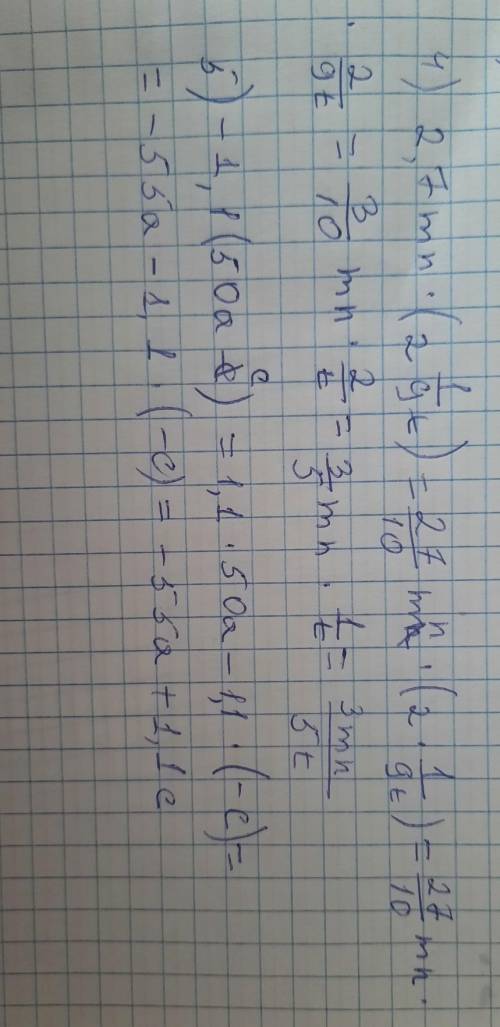 4) 2,7mn·(2 1/9t) = 27/10 mn·(2·1/9t) = 27/10 mn·
·2/9t = 3/10 mn·2/t = 3/5 mn·1/t = 3mn/5t
5) -1,1(50a c) = 1,1·50a-1,1·(-c)=
= -55a-1,1·(-c)= -55a+1,1c